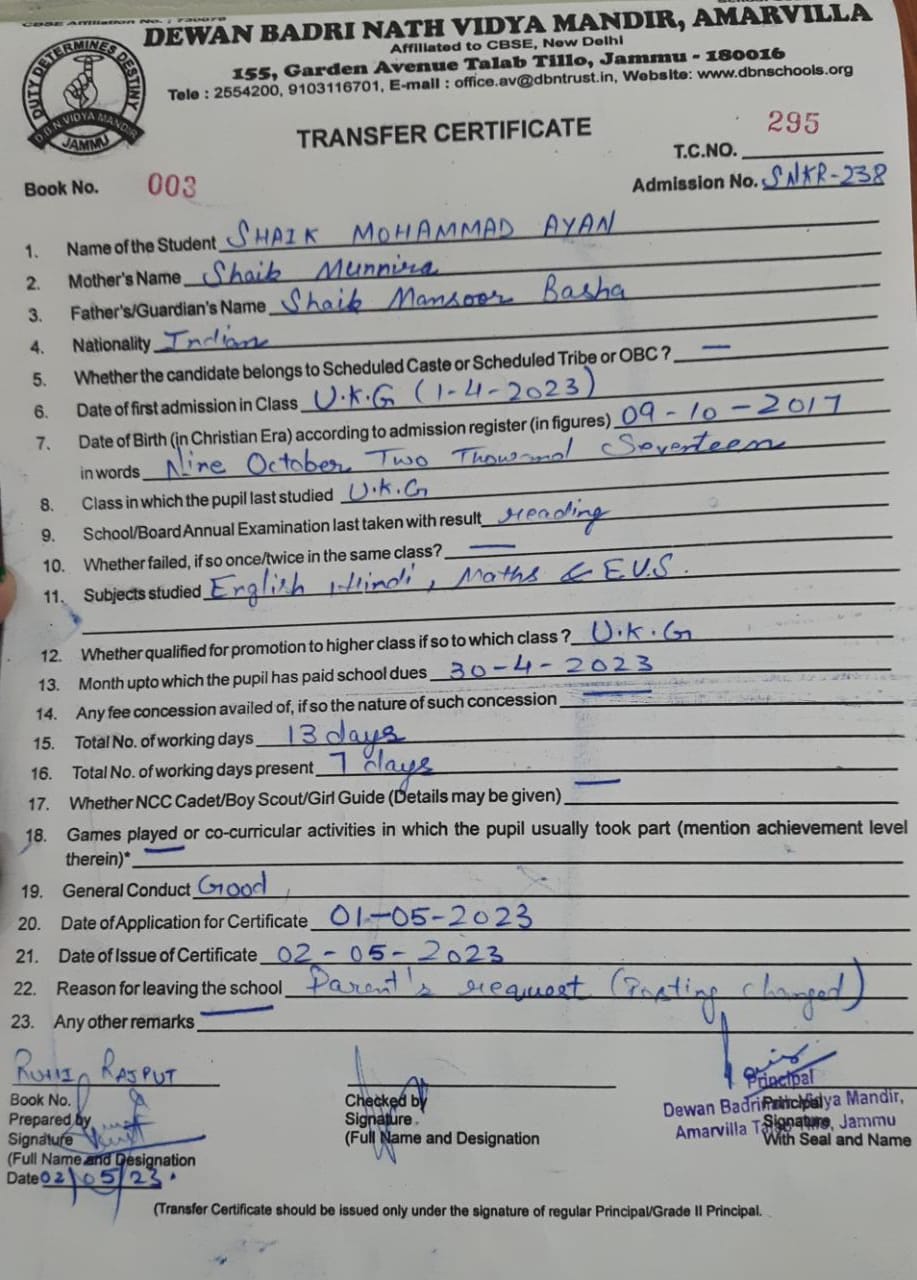 CBSE Affiliation No. : 730078
DEWAN BADRI NATH VIDYA MANDIR, AMARVILLA
Affiliated to CBSE, New Delhi
155, Garden Avenue Talab Tillo, Jammu - 180016
Tele : 2554200, 9103116701, E-mail : office.av@dbntrust.in, Website: www.dbnschools.org
DUTY DETERMINES DESTINY
D.B.N. VIDYA MANDIR
JAMMU
TRANSFER CERTIFICATE
T.C.NO. 295
Book No. 003
Admission No. SNKR-238
1. Name of the Student SHAIK MOHAMMAD AYAN
2. Mother's Name Shaik Munnira
3. Father's/Guardian's Name Shaik Mansoor Basha
4. Nationality Indian
5. Whether the candidate belongs to Scheduled Caste or Scheduled Tribe or OBC ? —
6. Date of first admission in Class U.K.G (1-4-2023)
7. Date of Birth (in Christian Era) according to admission register (in figures) 09-10-2017
in words Nine October Two Thousand Seventeen
8. Class in which the pupil last studied U.K.G
9. School/Board Annual Examination last taken with result reading
10. Whether failed, if so once/twice in the same class? —
11. Subjects studied English, Hindi, Maths & E.V.S.
12. Whether qualified for promotion to higher class if so to which class ? U.K.G
13. Month upto which the pupil has paid school dues 30-4-2023
14. Any fee concession availed of, if so the nature of such concession —
15. Total No. of working days 13 days
16. Total No. of working days present 7 days
17. Whether NCC Cadet/Boy Scout/Girl Guide (Details may be given) —
18. Games played or co-curricular activities in which the pupil usually took part (mention achievement level
therein)* —
19. General Conduct Good
20. Date of Application for Certificate 01-05-2023
21. Date of Issue of Certificate 02-05-2023
22. Reason for leaving the school Parent's request (Posting Changed)
23. Any other remarks —
RUHI RAJPUT
Book No.
Prepared by
Signature
(Full Name and Designation
Date 02/05/23.
Checked by
Signature.
(Full Name and Designation
Principal
Dewan Badri Nath Vidya Mandir,
Amarvilla Talab Tillo, Jammu
Principal
Signature,
With Seal and Name
(Transfer Certificate should be issued only under the signature of regular Principal/Grade II Principal.